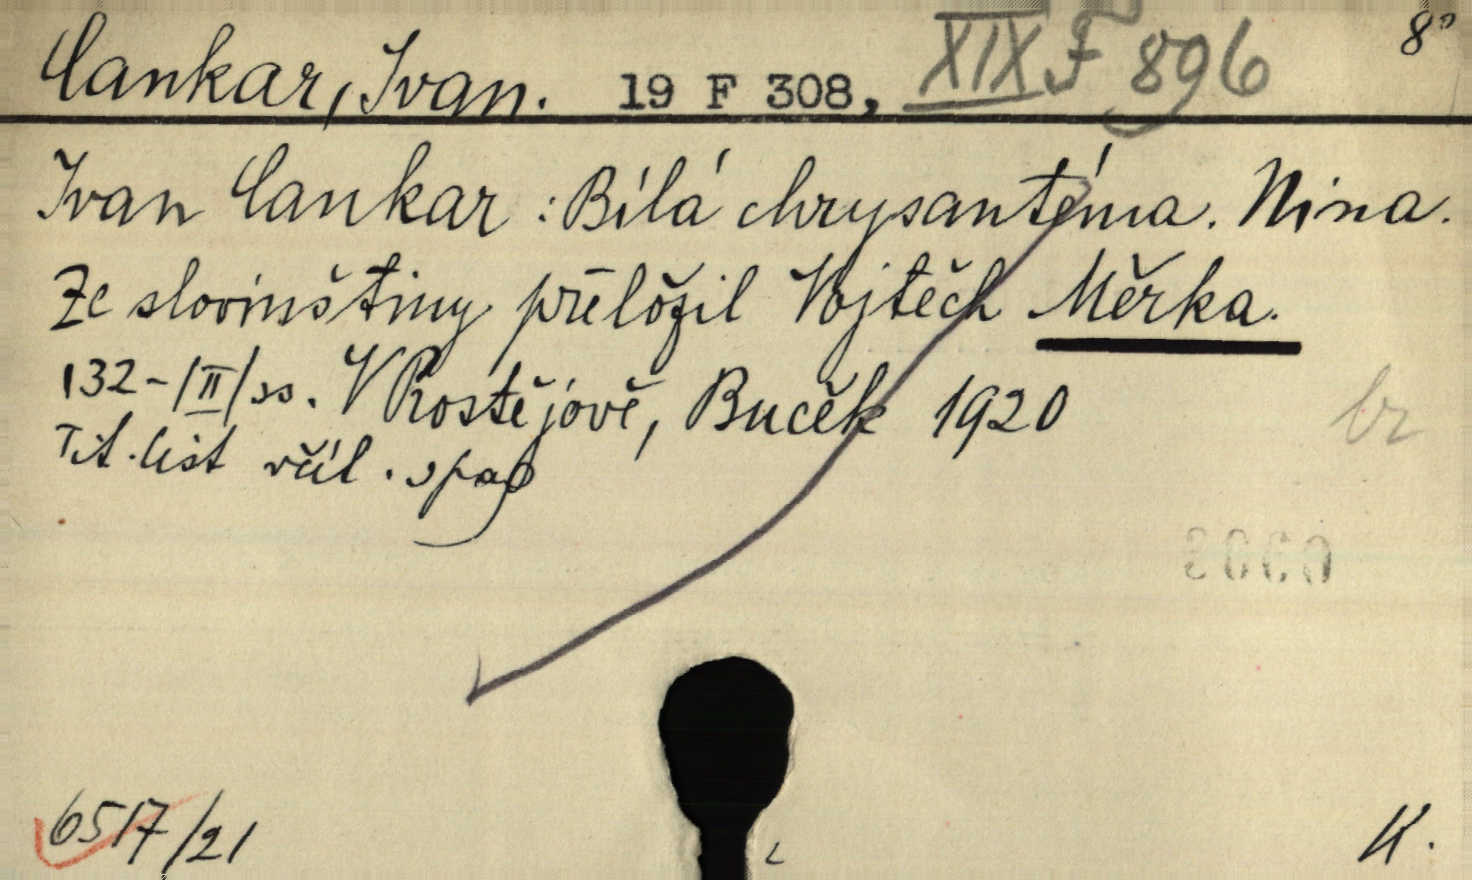 Cankar, Ivan. 19 F 308, XIX F 896 8°
Ivan Cankar: Bílá chrysantéma. Nina.
Ze slovinštiny přeložil Vojtěch Měrka.
132-/II/ ss. V Prostějově, Buček 1920
Tit. list včíl.
br
6517/21
K.